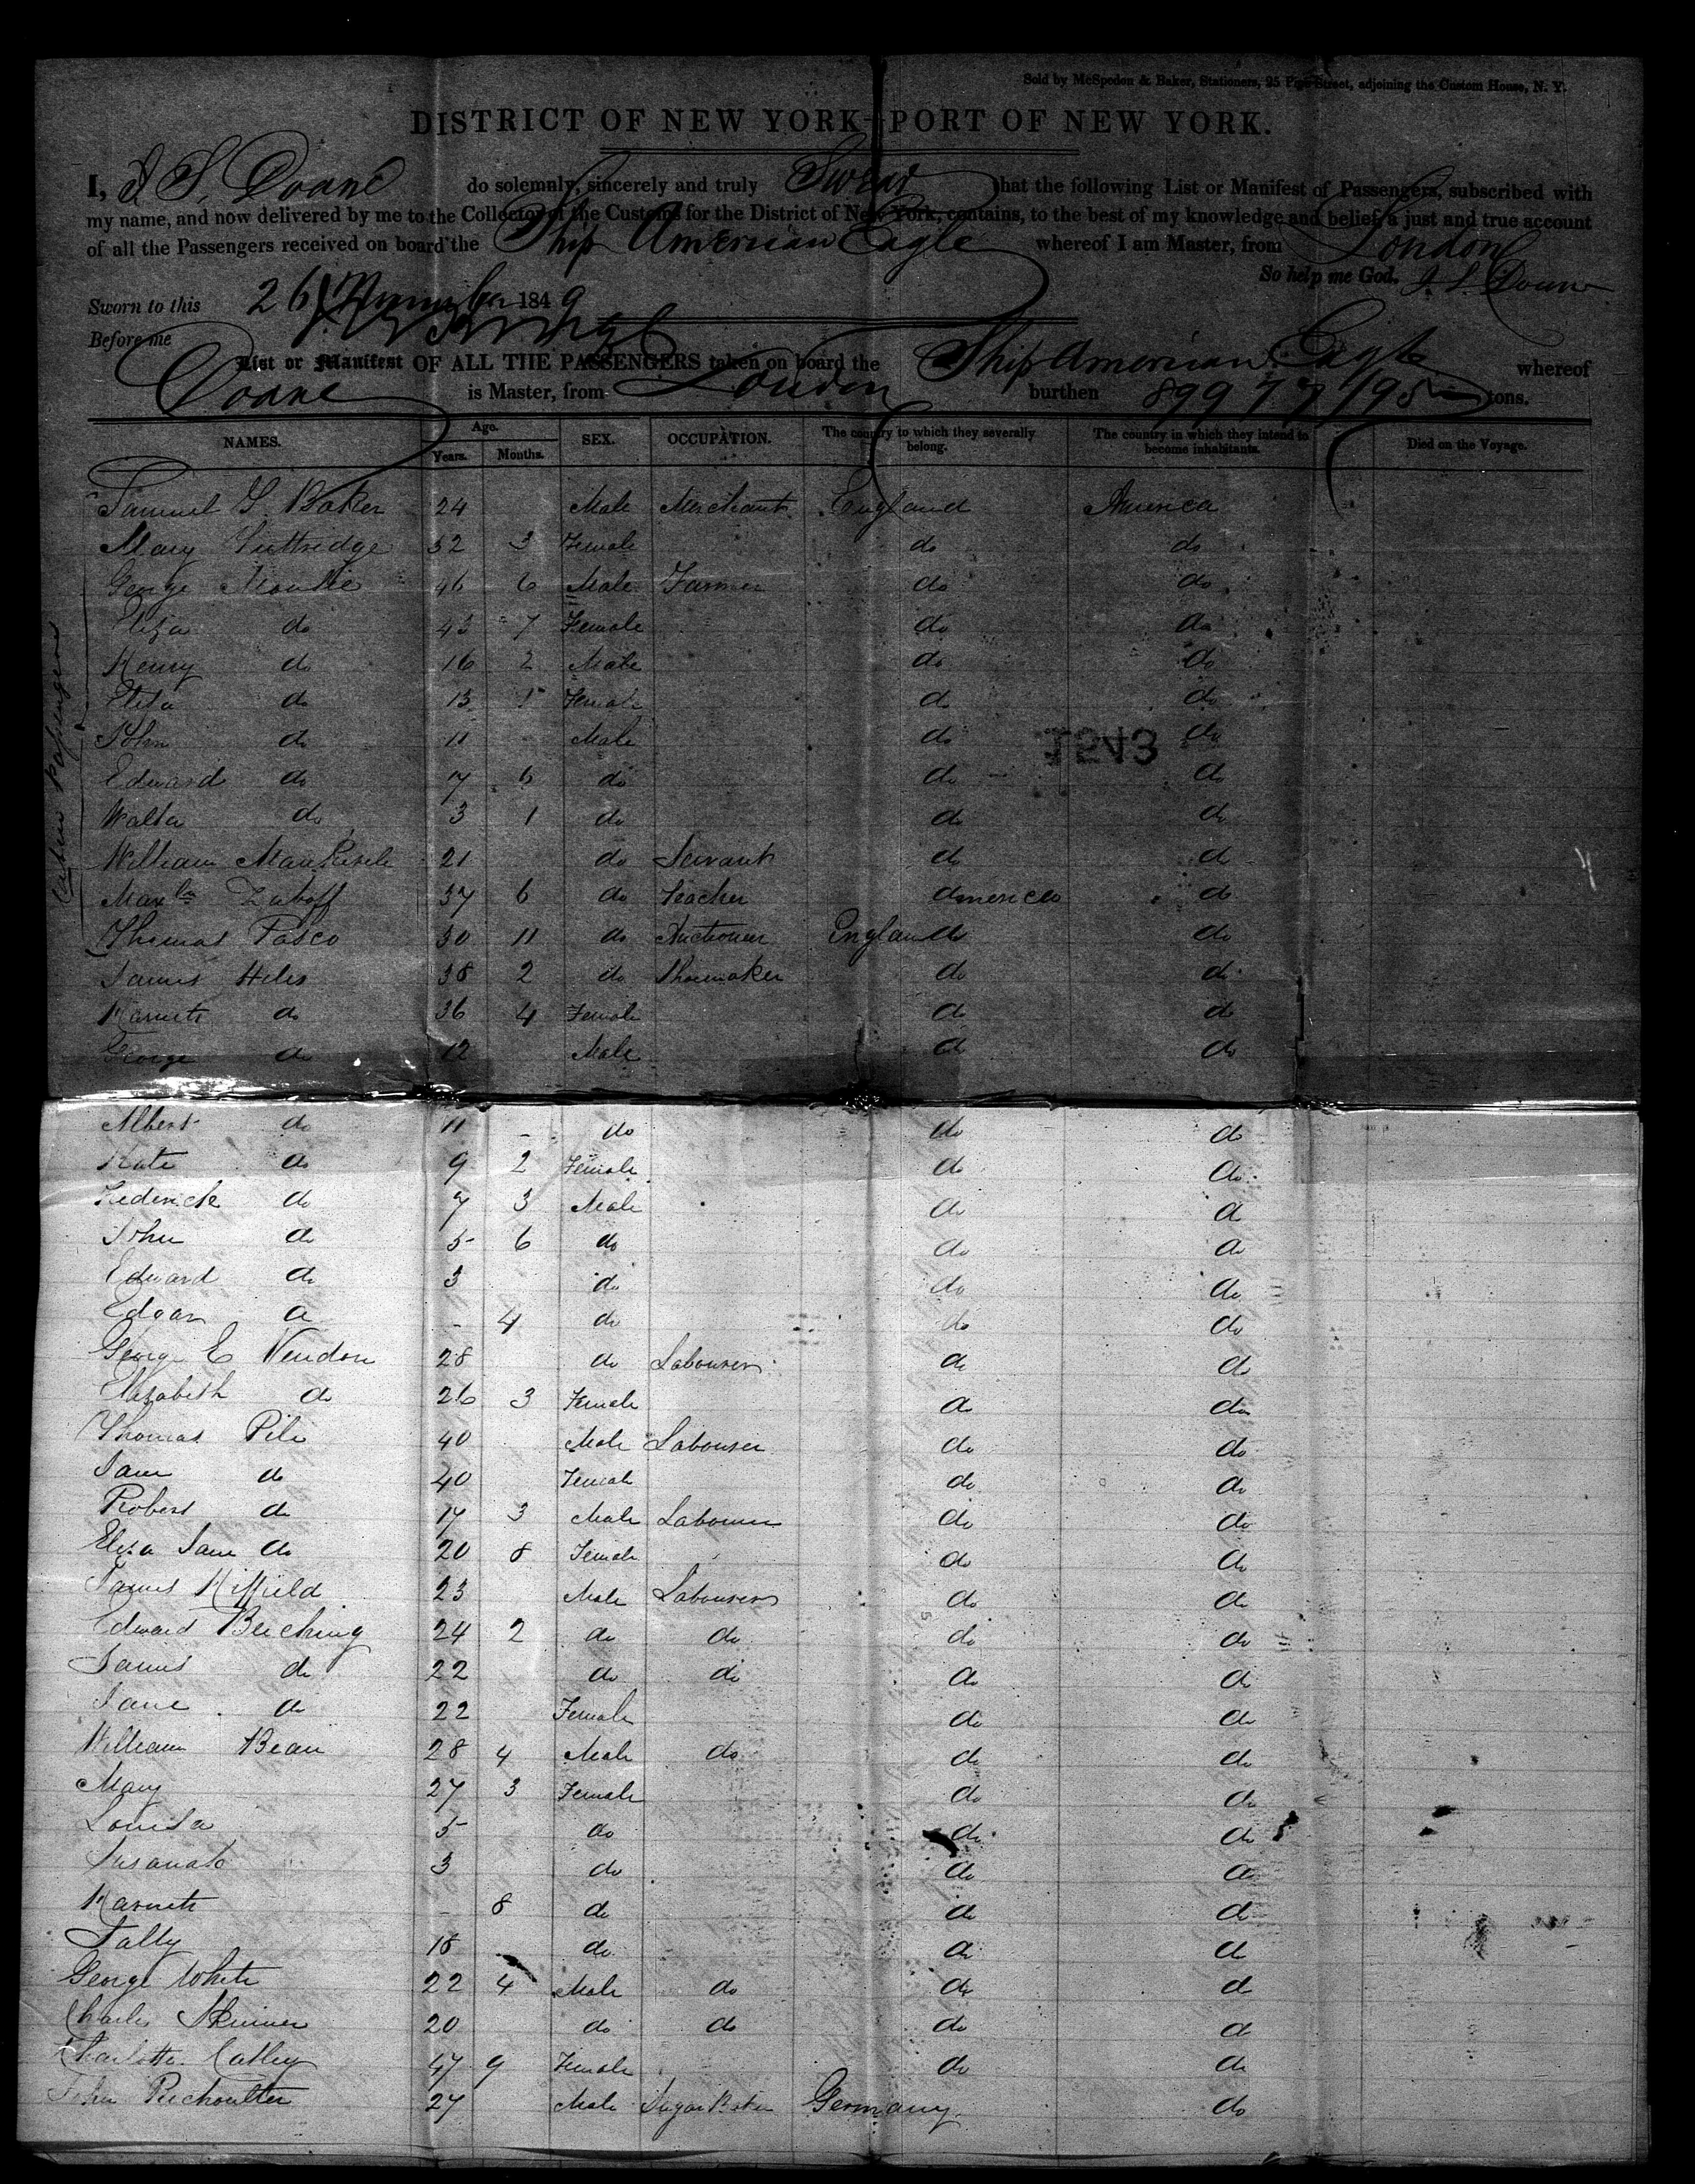 Sold by McSpedon & Baker, Stationers, 25 Pine Street, adjoining the Custom House, N. Y.
DISTRICT OF NEW YORK—PORT OF NEW YORK.
I, J S. Doane do solemnly, sincerely and truly Swear that the following List or Manifest of Passengers, subscribed with
my name, and now delivered by me to the Collector of the Customs for the District of New York, contains, to the best of my knowledge and belief, a just and true account
of all the Passengers received on board the Ship American Eagle whereof I am Master, from London
So help me God. J. S. Doane
Sworn to this 26 November 1849
Before me
List or Manifest OF ALL THE PASSENGERS taken on board the Ship American Eagle whereof
Doane is Master, from London burthen 899 77/95 tons.
NAMES. Age. Years. Months. SEX. OCCUPATION. The country to which they severally belong. The country in which they intend to become inhabitants. Died on the Voyage.
Cabin Passengers
Samuel G. Baker 24 Male Merchant England America
Mary 32 3 Female do do
George 46 6 Male Farmer do do
Eliza do 43 7 Female do do
Henry do 16 2 Male do do
Eliza do 13 1 Female do do
John do 11 Male do do
1543
Edward do 7 6 do do do
Walter do 3 1 do do do
William 21 do Servant do do
37 6 do Teacher America do
Thomas Pasco 30 11 do Auctioneer England do
James Hiles 38 2 do Shoemaker do do
Harriett do 36 4 Female do do
George do 12 Male do do
Albert do 11 - do do do
Kate do 9 2 Female do do
Frederick do 7 3 Male do do
John do 5 6 do do do
Edward do 3 do do do
Edgar do - 4 do do do
George E Vendon 28 do Labourer do do
Elizabeth do 26 3 Female do do
Thomas Pile 40 Male Labourer do do
Jane do 40 Female do do
Robert do 17 3 Male Labourer do do
Eliza Jane do 20 8 Female do do
James Hiffield 23 Male Labourer do do
Edward Beeching 24 2 do do do do
James do 22 do do do do
Jane do 22 Female do do
William Bean 28 4 Male do do do
Mary 27 3 Female do do
Louisa 5 do do do
Susanah 3 do do do
Harriett - 8 do do do
18 do do do
George White 22 4 Male do do do
Charles Skinner 20 do do do do
Charlotte Catley 47 9 Female do do
John 27 Male Sugar Baker Germany do